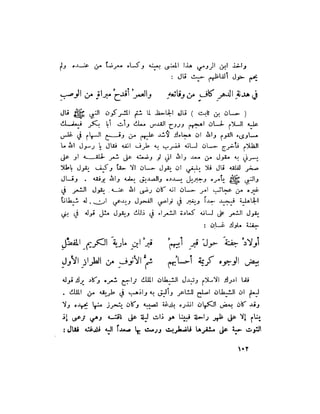 واخذ ابن الرومي هذا المعنى بعينه وكساه معرضاً من عنـــده ولم
يحم حول ألفاظهم حيث قال :
في هدنةِ الدهرِ كافٍ من وقائعِهِ والعمرُ أقدحُ مبراةٍ من الوصبِ
( حسان بن ثابت ) قال الجاحظ لما شتم المشركون النبي ﷺ قال
عليه السلام لحسان اهجهم وروح القدس معك وأت أبا بكر فيعلمـــك
مساوىء القوم والله ان هجاءك لأشد عليهم من وقـــع السهام في غلس
الظلام فأخرج حسان لسانه فضرب به طرف انفه فقال يا رسول الله ما
يسرني به مقول من معد والله اني لو وضعته على شعر لحلقـــه او على
صخر لفلقه قال فلا ينبغي ان يقول حسان الا حقاً وكيف يقول باطلا
والنبي ﷺ يأمره وجبريل يسدده والصديق يعلمه والله يوفقه . وقـــال
غيره من عجائب امر حسان انه كان رضى الله عنـه يقول الشعر في
الجاهلية فيجيد جداً ويغبر في نواصي الفحول ويدعي ان له شيطاناً
يقول الشعر على لسانه كعادة الشعراء في ذلك ويقول مثل قوله في بني
جفنة ملوك غسان :
أولادُ جفنةَ حولَ قبرِ أبيهمْ قبرُ ابنِ ماريةَ الكريمِ المفضّلِ
بيض الوجوهِ كريمةٍ أحسابُهم شمُّ الأنوفِ من الطرازِ الأولِ
فلما ادرك الاسلام وتبدل الشيطان الملك تراجع شعره وكاد يرك قوله
ليعلم ان الشيطان اصلح للشاعر وأليق به واذهب في طريقه من الملك .
وقد كان بعض الكهان انذره بلدغة تصيبه وكان يتحرز منها بجهده ولا
ينام إلا على ظهر راحلة فبينا هو ذات ليلة على ناقتـه وهي ترعى إذ
التوت حية على مشفرها فاضطربت ورمت بها صعداً اليه فلدغته فقال :
١٠٢